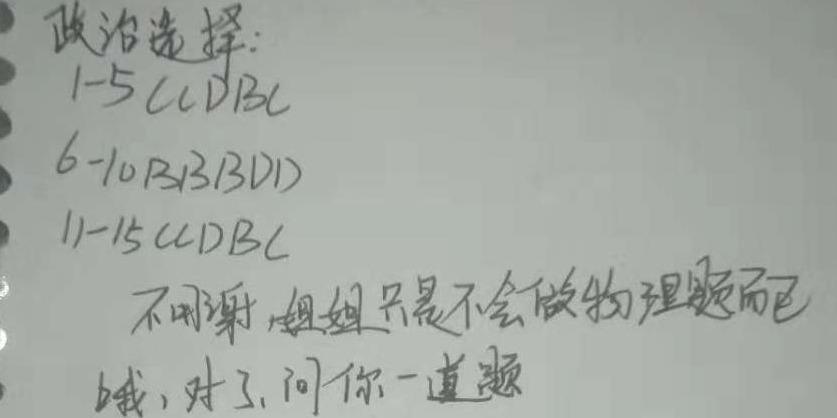 政治选择:
1-5 CCDBC
6-10 BBBDD
11-15 CCDBC
不用谢,姐姐只是不会做物理题而已
哦,对了,问你一道题